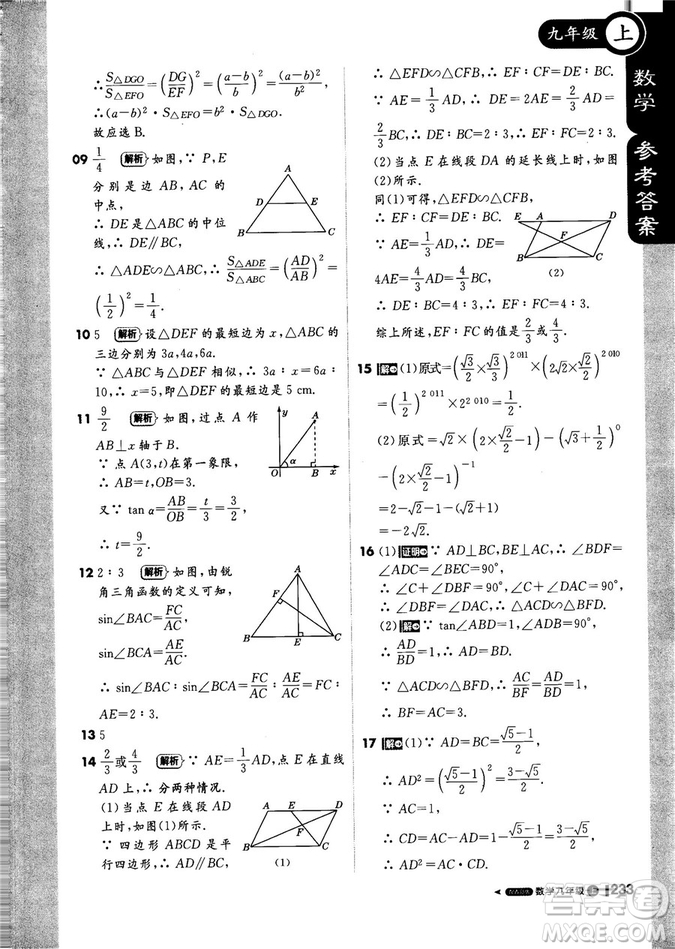 九年级 上
数学 参考答案
∴ S△DGO/S△EFO = (DG/EF)² = ((a-b)/b)² = (a-b)²/b²,
∴(a-b)²·S△EFO = b²·S△DGO.
故应选 B.
09 1/4 解析 如图,∵ P,E
分别是边 AB,AC 的
中点,
∴ DE 是△ABC 的中位
线,∴ DE∥BC,
∴ △ADE∽△ABC,∴ S△ADE/S△ABC = (AD/AB)²
= (1/2)² = 1/4.
10 5 解析 设△DEF 的最短边为 x,△ABC 的
三边分别为 3a,4a,6a.
∵ △ABC 与△DEF 相似,∴ 3a∶x=6a∶
10,∴ x=5,即△DEF 的最短边是 5 cm.
11 9/2 解析 如图,过点 A 作
AB⊥x 轴于 B.
∵ 点 A(3,t)在第一象限,
∴ AB=t,OB=3.
又∵ tan α = AB/OB = t/3 = 3/2,
∴ t = 9/2.
12 2∶3 解析 如图,由锐
角三角函数的定义可知,
sin∠BAC = FC/AC,
sin∠BCA = AE/AC,
∴ sin∠BAC∶sin∠BCA=FC∶
AE=2∶3.
13 5
14 2/3或4/3 解析 ∵ AE=1/3AD,点 E 在直线
AD 上,∴ 分两种情况.
(1)当点 E 在线段 AD
上时,如图(1)所示.
∵ 四边形 ABCD 是平
行四边形,∴ AD∥BC,
D E B C A
y A O α B x
A F B E C
A E D F B C (1)
∴ △EFD∽△CFB,∴ EF∶CF=DE∶BC.
∵ AE=1/3AD,∴ DE=2AE=2/3AD=
2/3BC,∴ DE∶BC=2∶3,∴ EF∶FC=2/3.
(2)当点 E 在线段 DA 的延长线上时,如图
(2)所示.
同(1)可得,△EFD∽△CFB,
∴ EF∶CF=DE∶BC.
∵ AE=1/3AD,∴ DE=
4AE=4/3AD=4/3BC,
∴ DE∶BC=4∶3,∴ EF∶FC=4/3.
综上所述,EF∶FC 的值是2/3或4/3.
E A D F B C (2)
15 解 (1)原式=(√3/2×√3/3)^2 011×(2√2×√2/2)^2 010
=(1/2)^2 011×2^2 010
=1/2.
(2)原式=√2(√2-√2/2)-(√3+1/2)⁰
-(√2/2-1/2)/(1/2)²
=2-1-1-4(√2/2-1/2)
=2-√2-1-1-(√2+1)
=-2√2.
16 (1)证明 ∵ AD⊥BC,BE⊥AC,∴ ∠BDF=
∠ADC=∠BEC=90°,
∴ ∠C+∠DBF=90°,∠C+∠DAC=90°,
∴ ∠DBF=∠DAC,∴ △ACD∽△BFD.
(2)解 ∵ tan∠ABD=1,∠ADB=90°,
∴ AD/BD=1,∴ AD=BD.
∵ △ACD∽△BFD,∴ AC/BF=AD/BD=1,
∴ BF=AC=3.
17 解 (1)∵ AD=BC=(√5-1)/2,
∴ AD²=((√5-1)/2)²=(3-√5)/2.
∵ AC=1,
∴ CD=AC-AD=1-(√5-1)/2=(3-√5)/2,
∴ AD²=AC·CD.
数学九年级 上 233